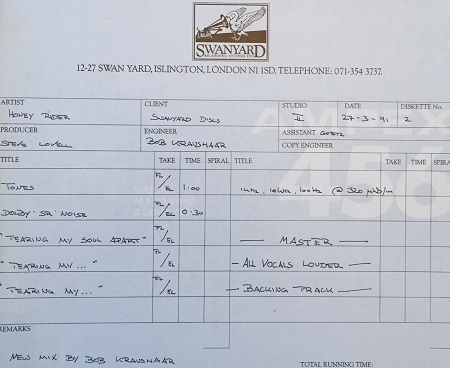 SWANYARD
12-27 SWAN YARD, ISLINGTON, LONDON N1 1SD. TELEPHONE: 071-354 3737.
ARTIST CLIENT STUDIO DATE DISKETTE No.
HONEY RIDER SWANYARD DISCS II 27-3-91 2
PRODUCER ENGINEER ASSISTANT GOETZ
STEVE LOVELL BOB KRAUSHAAR COPY ENGINEER
AMPEX
456
TITLE TAKE TIME SPIRAL TITLE TAKE TIME SPIRAL
TONES FL/EL 1:00 1kHz, 10kHz, 100Hz @ 320 nWb/m
DOLBY SR NOISE FL/EL 0:30
"TEARING MY SOUL APART" FL/EL — MASTER —
"TEARING MY..." FL/EL — ALL VOCALS LOUDER —
"TEARING MY..." FL/EL — BACKING TRACK —
REMARKS
NEW MIX BY BOB KRAUSHAAR
TOTAL RUNNING TIME: